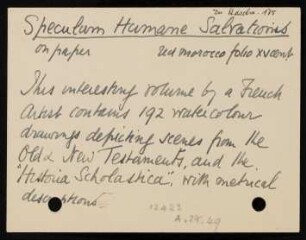 Speculum Humane Salvationis
on paper red morocco folio xv cent
This interesting volume by a French
Artist contains 192 watercolour
drawings depicting scenes from the
Old & New Testaments, and the
"Historia Scholastica", with metrical
descriptions
12423
A.28.49